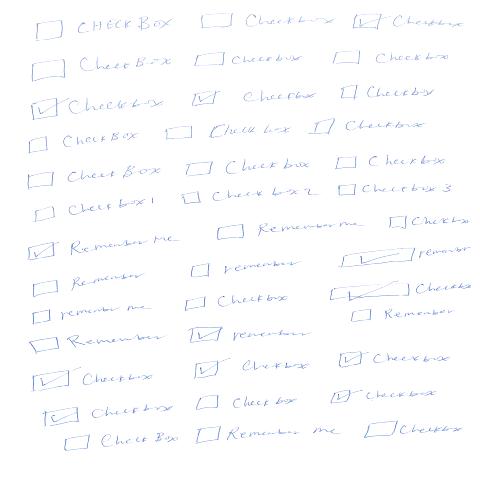 CHECK BOX Checkbox Checkbox
Check Box Checkbox Checkbox
Checkbox Checkbox Checkbox
Check Box Check box Checkbox
Check Box Check box Checkbox
Check box 1 Check box 2 Check box 3
Remember Me Remember me Checkbox
Remember remember remember
remember me Checkbox Checkbox
Remember remember Remember
Checkbox Checkbox Checkbox
Checkbox Check box Checkbox
Check Box Remember me Checkbox